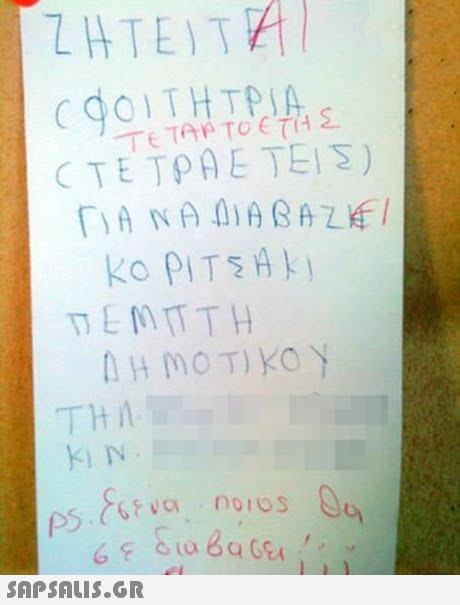 ΖΗΤΕΙΤΕΑΙ
(ΦΟΙΤΗΤΡΙΑ
ΤΕΤΑΡΤΟΕΤΗΣ
(ΤΕΤΡΑΕΤΕΙΣ)
ΓΙΑ ΝΑ ΔΙΑΒΑΖΗΕΙ
ΚΟΡΙΤΣΑΚΙ
ΠΕΜΠΤΗ
ΔΗΜΟΤΙΚΟΥ
ΤΗΛ.
ΚΙΝ.
ps. Εσενα ποιος θα
σε διαβασει !;;;
SAPSALIS.GR